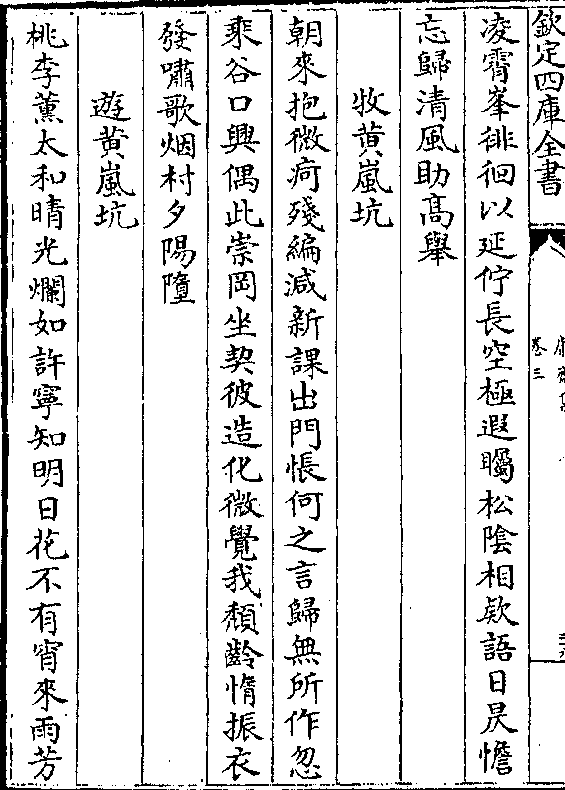 欽定四庫全書
卷三
凌霄峯徘徊以延佇長空極遐矚松陰相欵語日昃憺
忘歸清風助髙舉
牧黄嵐坑
朝來抱微疴殘編減新課出門悵何之言歸無所作忽
乘谷口興偶此崇岡坐契彼造化微覺我頽齡惰振衣
發嘯歌烟村夕陽墮
遊黄嵐坑
桃李薫太和晴光爛如許寧知明日花不有宵來雨芳